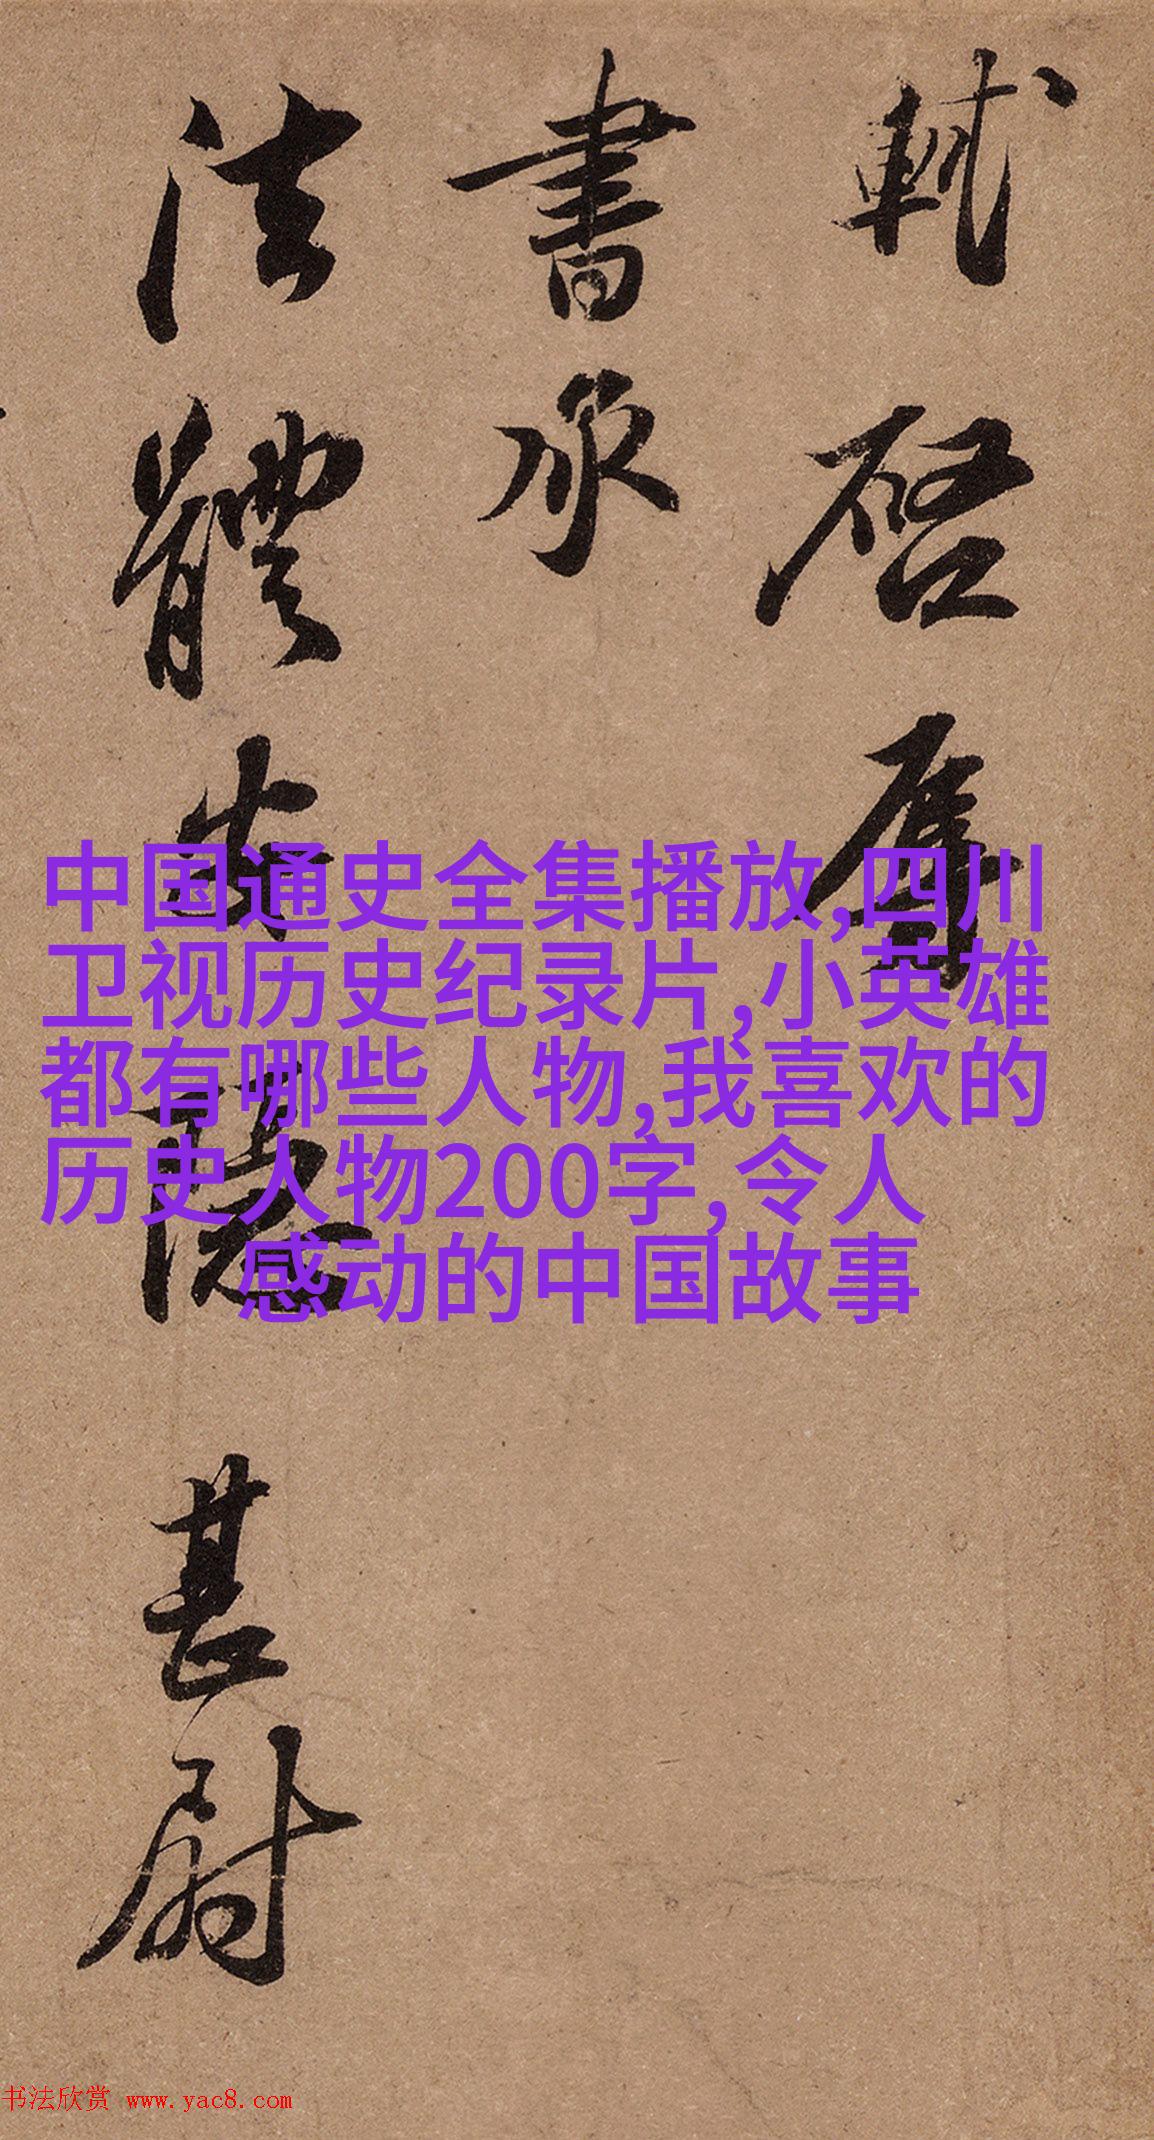 軾啓辱
書承
法體安隱甚慰
中国通史全集播放,四川
卫视历史纪录片,小英雄
都有哪些人物,我喜欢的
历史人物200字,令人
感动的中国故事
书法欣赏 www.yac8.com